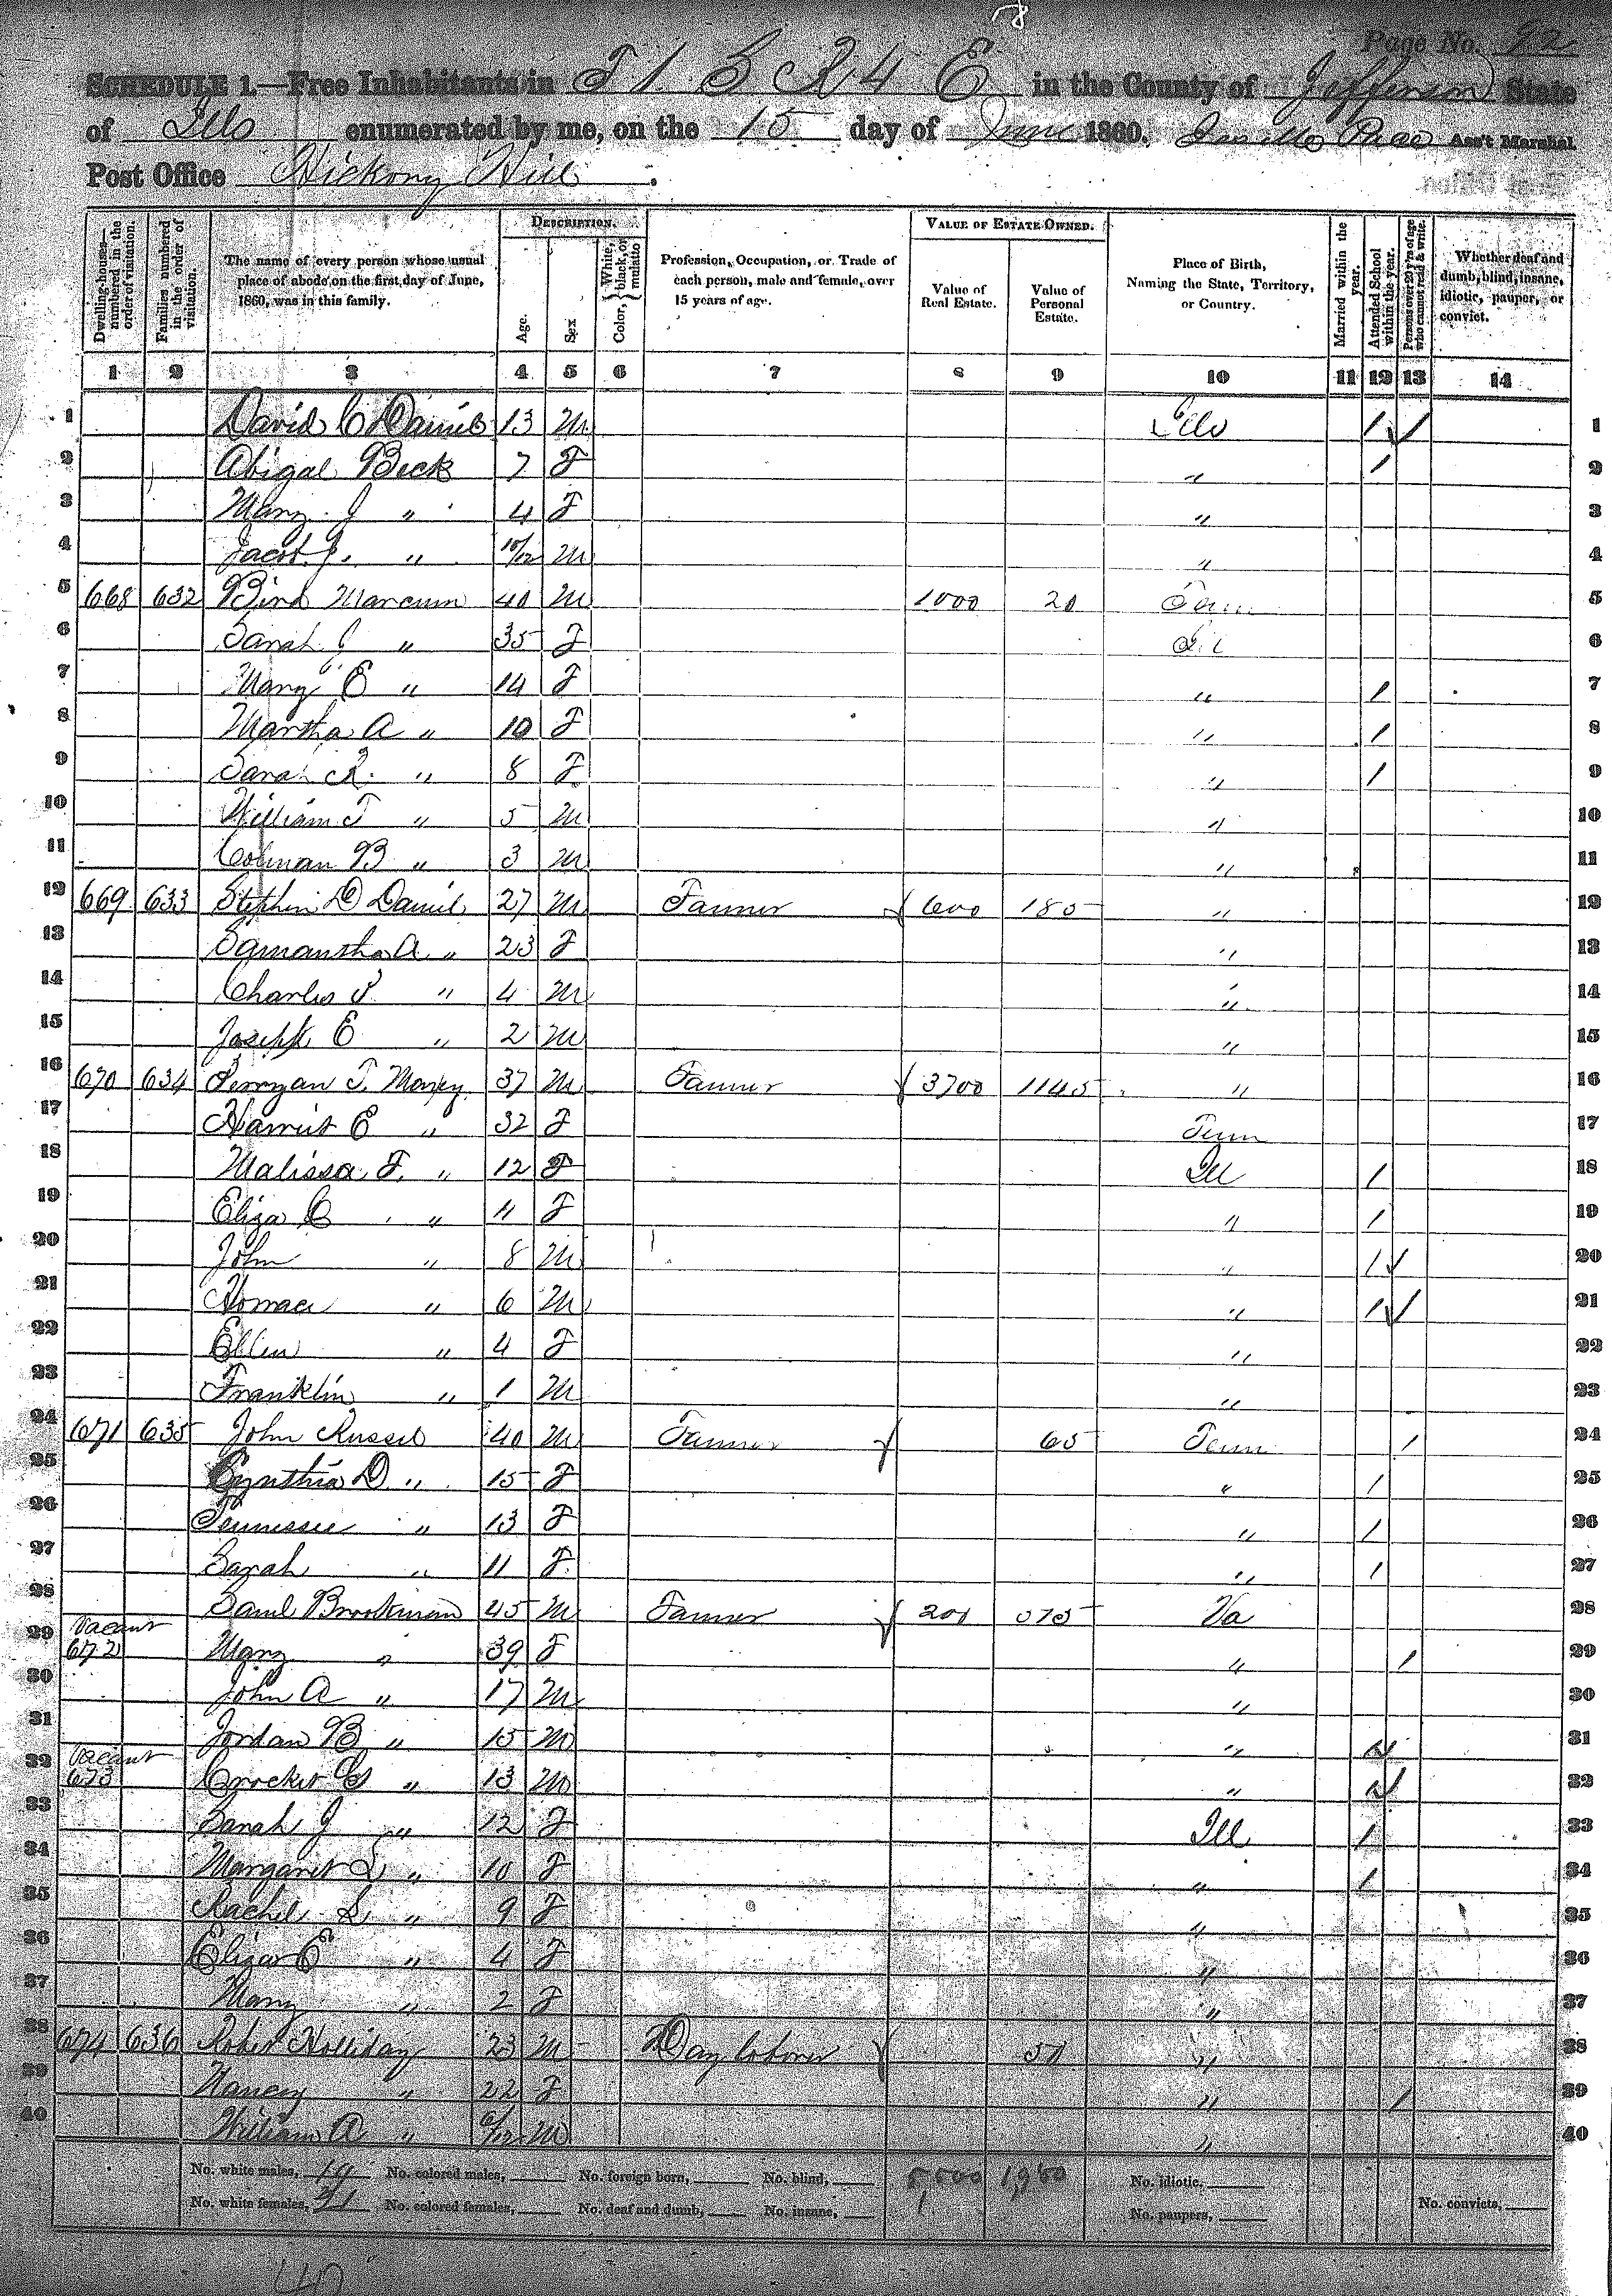 Page No. 92
SCHEDULE 1.—Free Inhabitants in T 1 S R 4 E in the County of Jefferson State
of Ills enumerated by me, on the 15 day of June 1860. Ass't Marshal.
Post Office Hickory Hill.
Dwelling-houses—numbered in the order of visitation.
Families numbered in the order of visitation.
The name of every person whose usual place of abode on the first day of June, 1860, was in this family.
DESCRIPTION.
Age.
Sex
Color, White, black, or mulatto
Profession, Occupation, or Trade of each person, male and female, over 15 years of age.
VALUE OF ESTATE OWNED.
Value of Real Estate.
Value of Personal Estate.
Place of Birth, Naming the State, Territory, or Country.
Married within the year.
Attended School within the year.
Persons over 20 y'rs of age who cannot read & write.
Whether deaf and dumb, blind, insane, idiotic, pauper, or convict.
1 2 3 4 5 6 7 8 9 10 11 12 13 14
1 David C Daniel 13 M Ills / 1
2 Abigal Beck 7 F " / 2
3 Mary J " 4 F " 3
4 Jacob J. " 10/12 M " 4
5 668 632 Bird Marcum 40 M 1000 20 Tenn 5
6 Sarah J " 35 F Ill 6
7 Mary E " 14 F " / 7
8 Martha A " 10 F " / 8
9 Sarah R. " 8 F " / 9
10 William T " 5 M " 10
11 Colman B " 3 M " 11
12 669 633 Stephen D Daniel 27 M Farmer 600 185 " 12
13 Samantha A. " 23 F " 13
14 Charles " 4 M " 14
15 Joseph E " 2 M " 15
16 670 634 T. 37 M Farmer 3700 1145 " 16
17 Harriet E " 32 F Tenn 17
18 Malissa F. " 12 F Ill / 18
19 Eliza C " 11 F " / 19
20 John " 8 M " / 20
21 Horace " 6 M " / 21
22 Ellen " 4 F " 22
23 Franklin " 1 M " 23
24 671 635 John Russel 40 M Farmer 65 Tenn / 24
25 Cynthia D " 15 F " / 25
26 Tennessee " 13 F " / 26
27 Sarah " 11 F " / 27
28 Saml Brookman 45 M Farmer 200 Va 28
29 Vacant 672 Mary " 39 F " / 29
30 John A " 17 M " 30
31 Jordan B " 15 M " / 31
32 Vacant 673 Crocket G " 13 M " / 32
33 Sarah J " 12 F Ill / 33
34 Margaret L " 10 F " / 34
35 Rachel L " 9 F " 35
36 Eliza E " 4 F " 36
37 Mary " 2 F " 37
38 674 636 Robert Holliday 23 M Day laborer 50 " 38
39 Nancy " 22 F " / 39
40 William A " 6/12 M " 40
No. white males, 19 No. colored males, No. foreign born, No. blind, 5,500 No. idiotic,
No. white females, 21 No. colored females, No. deaf and dumb, No. insane, No. paupers, No. convicts,
40